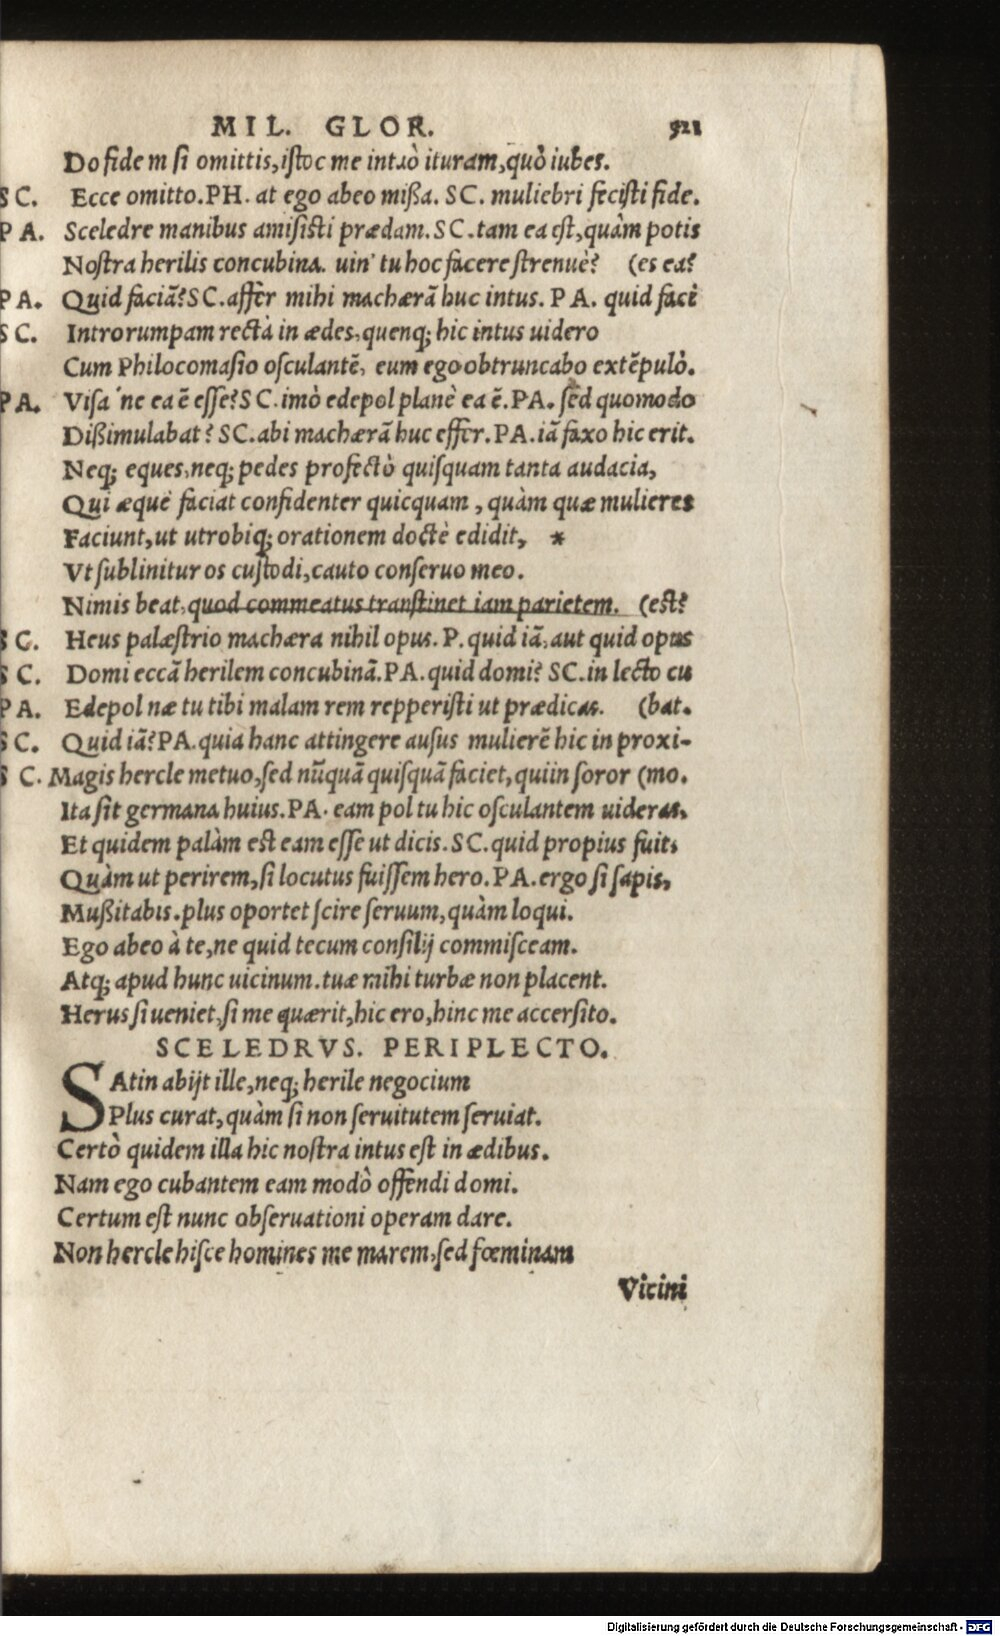 MIL. GLOR. 521
Do fidem si omittis, istoc me intrò ituram, quò iubes.
SC. Ecce omitto. PH. at ego abeo mißa. SC. muliebri fecisti fide.
PA. Sceledre manibus amisisti prædam. SC. tam ea est, quàm potis
Nostra herilis concubina. uin' tu hoc facere strenuè? (es ea?
PA. Quid faciā? SC. affer mihi machærā huc intus. PA. quid faci
SC. Introrumpam rectà in ædes, quenq; hic intus uidero
Cum Philocomasio osculantē, eum ego obtruncabo extēpulò.
PA. Visa 'ne ea ē esse? SC. imò edepol planè ea ē. PA. sed quomodo
Dißimulabat? SC. abi machærā huc effer. PA. iā faxo hic erit.
Neq; eques, neq; pedes profectò quisquam tanta audacia,
Qui æquè faciat confidenter quicquam, quàm quæ mulieres
Faciunt, ut utrobiq; orationem doctè edidit, *
Vt sublinitur os custodi, cauto conseruo meo.
Nimis beat, quod commeatus transtinet iam parietem. (est?
SC. Heus palæstrio machæra nihil opus. P. quid iā, aut quid opus
SC. Domi eccā herilem concubinā. PA. quid domi? SC. in lecto cu
PA. Edepol næ tu tibi malam rem repperisti ut prædicas. (bat.
SC. Quid iā? PA. quia hanc attingere ausus mulierē hic in proxi-
SC. Magis hercle metuo, sed nūquā quisquā faciet, quiin soror (mo.
Ita sit germana huius. PA. eam pol tu hic osculantem uideras,
Et quidem palàm est eam esse ut dicis. SC. quid propius fuit,
Quàm ut perirem, si locutus fuissem hero. PA. ergo si sapis,
Mußitabis. plus oportet scire seruum, quàm loqui.
Ego abeo à te, ne quid tecum consilij commisceam.
Atq; apud hunc uicinum. tuæ mihi turbæ non placent.
Herus si ueniet, si me quærit, hic ero, hinc me accersito.
SCELEDRVS. PERIPLECTO.
SAtin abijt ille, neq; herile negocium
Plus curat, quàm si non seruitutem seruiat.
Certò quidem illa hic nostra intus est in ædibus.
Nam ego cubantem eam modò offendi domi.
Certum est nunc obseruationi operam dare.
Non hercle hisce homines me marem, sed fœminam
Vicini
Digitalisierung gefördert durch die Deutsche Forschungsgemeinschaft - DFG